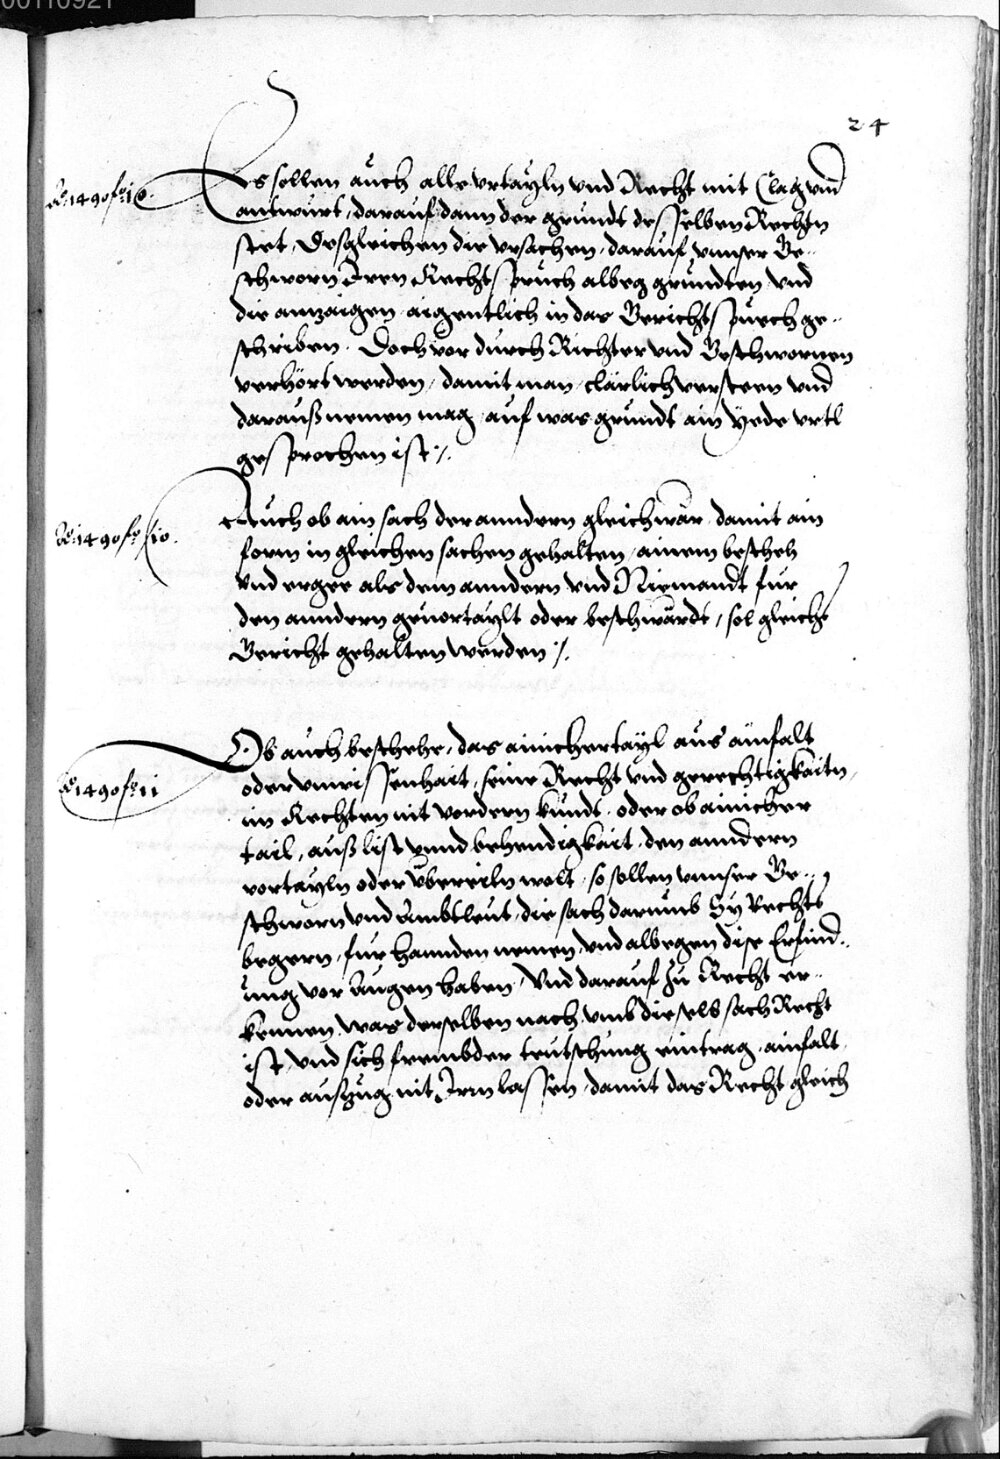 00110921
24
A. 1490 fo. 10.
Es sollen auch alle vrtayln vnd Recht mit Clag vnd
antwurt, darauf dann der grundt desselben Rechtn
stet, Desgleichen die vrsachen, darauf vnnser Ge-
schworn Iren Rechtspruch albeg grundten vnd
die anzaigen aigentlich in das Gerichtspuech ge-
schriben. Doch vor durch Richter vnd Geschwornen
verhört werden, damit man clärlich versteen vnd
daraus nemen mag auf was grundt ain yede vrtl
gesprochen ist ./.
A. 1490 fo. 10.
Auch ob ain sach der anndern gleich wär damit ain
form in gleichen sachen gehalten, ainem bescheh
vnd ergee als dem anndern vnd Niemandt fur
den anndern geuortaylt oder beschwärdt, sol gleichs
Gericht gehalten werden ./.
A. 1490 fo. 11
Ob auch beschehe, das ainicher tayl aus ainfalt
oder vnwissenhait, seine Recht vnd gerechtigkaitn
im Rechten nit vordern kundt. oder ob ainicher
tail, auß list vnnd behendigkait, den anndern
vortayln oder übereiln wolt, so sollen vnnser Ge-
schworn vnd Ambtleut, die sach darumb Sy Rechts
begern, fur hannden nemen, vnd albegen dise Erfind-
ung vor Augen haben, Vnd darauf zu Recht er-
kennen, was derselben nach vmb dieselb sach Recht
ist, vnd sich frembder teutschung eintrag, ainfalt,
oder auszug nit Irrn lassen, damit das Recht gleich